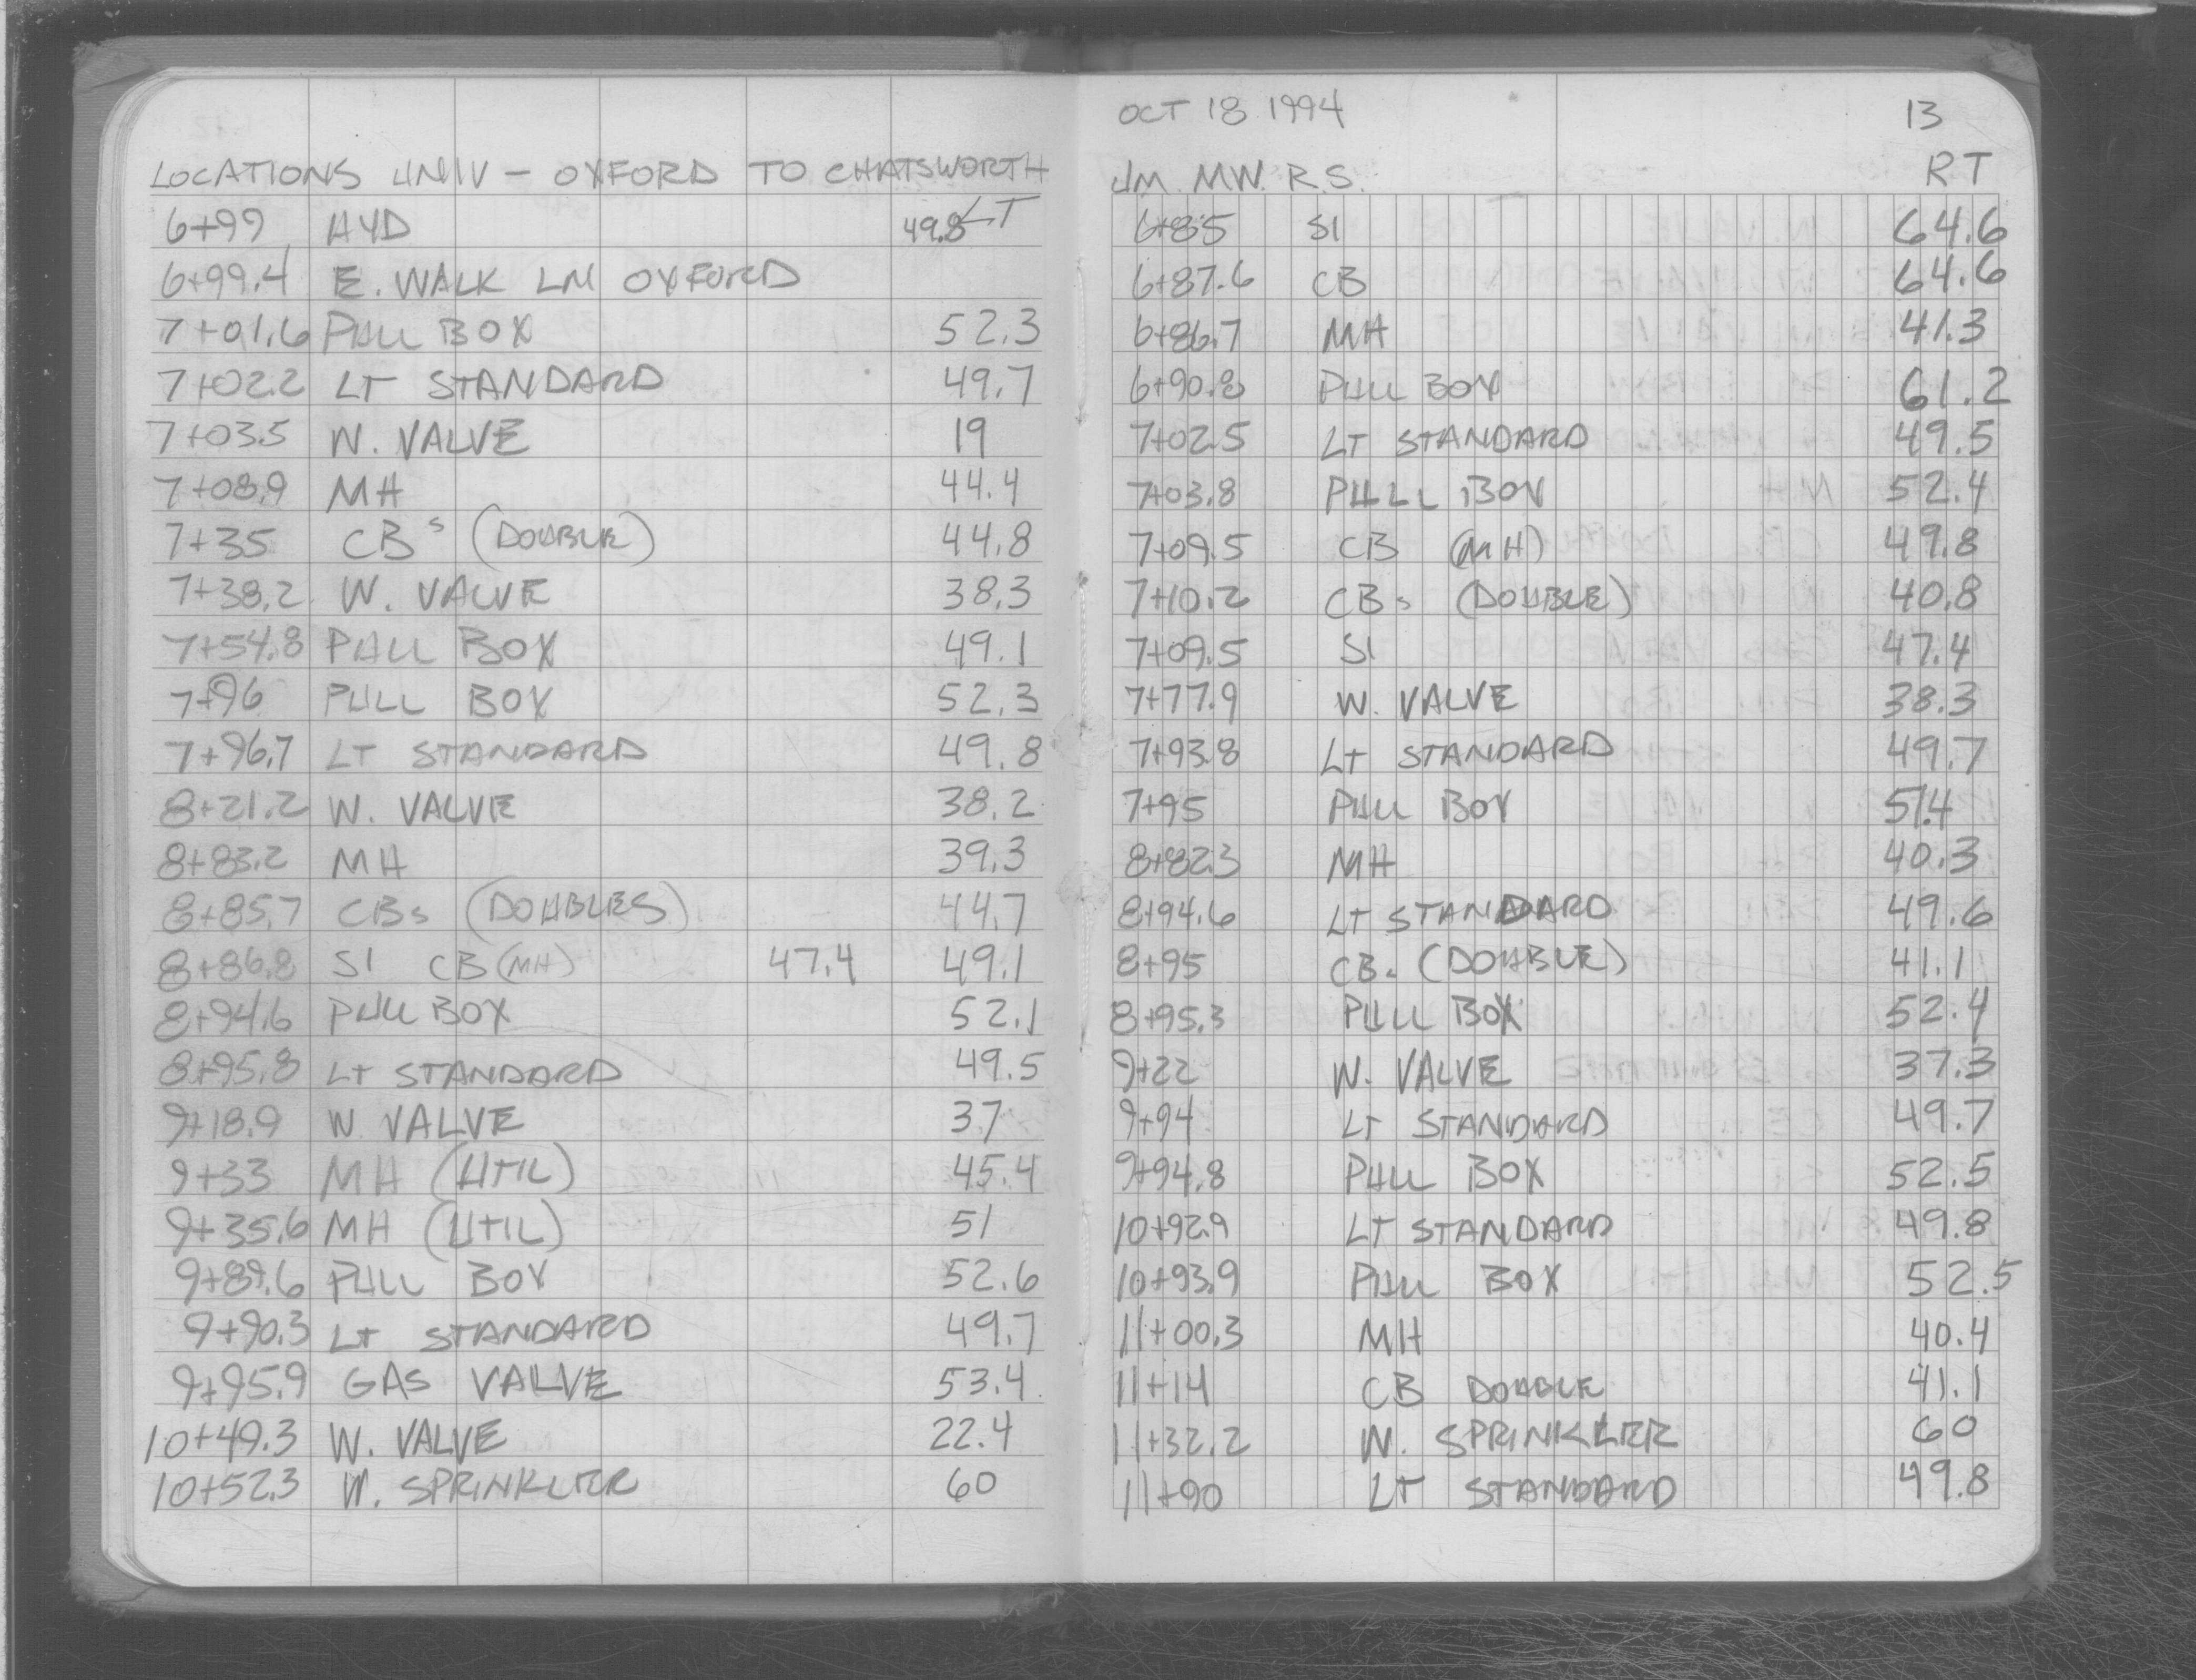 LOCATIONS UNIV - OXFORD TO CHATSWORTH
6+99 HYD 49.8 LT
6+99.4 E. WALK LN OXFORD
7+01.6 PULL BOX 52.3
7+02.2 LT STANDARD 49.7
7+03.5 W. VALVE 19
7+08.9 MH 44.4
7+35 CBs (DOUBLE) 44.8
7+38.2 W. VALVE 38.3
7+54.8 PULL BOX 49.1
7+96 PULL BOX 52.3
7+96.7 LT STANDARD 49.8
8+21.2 W. VALVE 38.2
8+83.2 MH 39.3
8+85.7 CBs (DOUBLES) 44.7
8+86.8 SI CB (MH) 47.4 49.1
8+94.6 PULL BOX 52.1
8+95.8 LT STANDARD 49.5
9+18.9 W VALVE 37
9+33 MH (UTIL) 45.4
9+35.6 MH (UTIL) 51
9+89.6 PULL BOX 52.6
9+90.3 LT STANDARD 49.7
9+95.9 GAS VALVE 53.4
10+49.3 W. VALVE 22.4
10+52.3 W. SPRINKLER 60
OCT 18 1994 13
JM. MW. R.S. RT
6+85 SI 64.6
6+87.6 CB 64.6
6+86.7 MH 41.3
6+90.8 PULL BOX 61.2
7+02.5 LT STANDARD 49.5
7+03.8 PULL BOX 52.4
7+09.5 CB (MH) 49.8
7+10.2 CBs (DOUBLE) 40.8
7+09.5 SI 47.4
7+77.9 W. VALVE 38.3
7+93.8 LT STANDARD 49.7
7+95 PULL BOX 51.4
8+82.3 MH 40.3
8+94.6 LT STANDARD 49.6
8+95 CBs (DOUBLE) 41.1
8+95.3 PULL BOX 52.4
9+22 W. VALVE 37.3
9+94 LT STANDARD 49.7
9+94.8 PULL BOX 52.5
10+92.9 LT STANDARD 49.8
10+93.9 PULL BOX 52.5
11+00.3 MH 40.4
11+14 CB DOUBLE 41.1
11+32.2 W. SPRINKLER 60
11+90 LT STANDARD 49.8